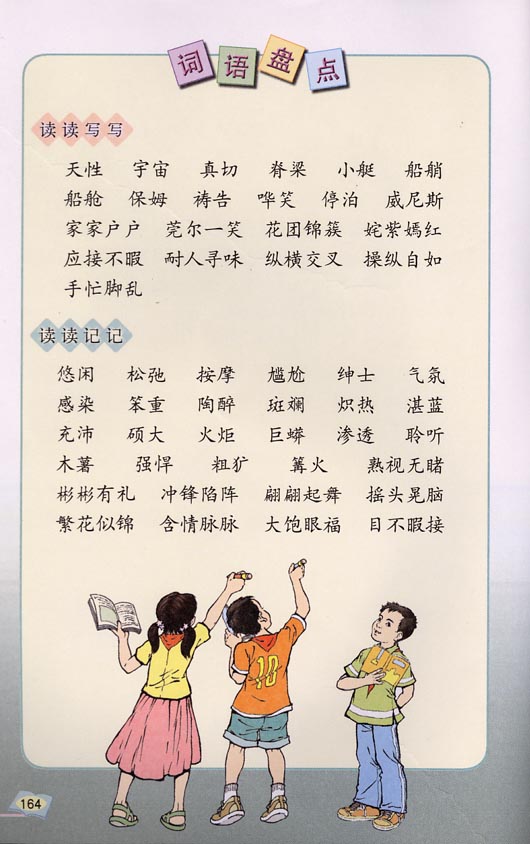 词语盘点
读读写写
天性 宇宙 真切 脊梁 小艇 船艄
船舱 保姆 祷告 哗笑 停泊 威尼斯
家家户户 莞尔一笑 花团锦簇 姹紫嫣红
应接不暇 耐人寻味 纵横交叉 操纵自如
手忙脚乱
读读记记
悠闲 松弛 按摩 尴尬 绅士 气氛
感染 笨重 陶醉 斑斓 炽热 湛蓝
充沛 硕大 火炬 巨蟒 渗透 聆听
木薯 强悍 粗犷 篝火 熟视无睹
彬彬有礼 冲锋陷阵 翩翩起舞 摇头晃脑
繁花似锦 含情脉脉 大饱眼福 目不暇接
10
164